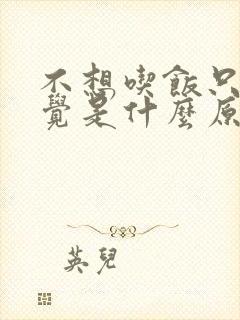 不想喫飯只
覺是什麼原
英兒